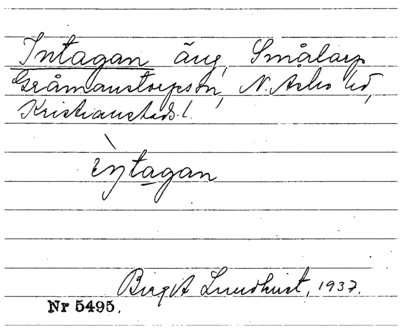 Intagan äng, Smålarp
Gråmanstorpssn, N. Åsbo hd,
Kristianstads l.
ìntagan
Birgit Lundkvist, 1937.
Nr 5495.